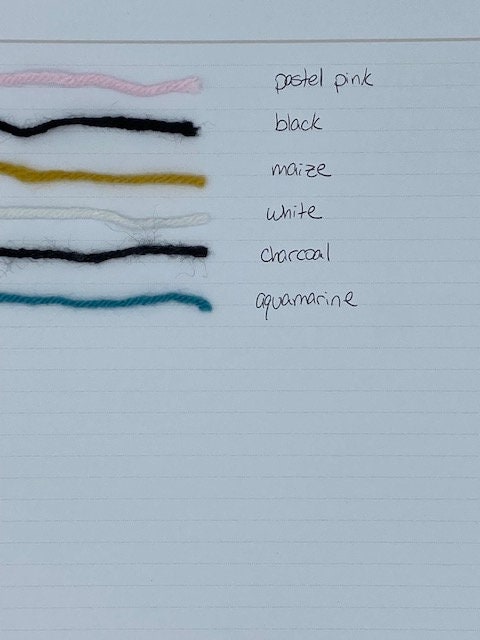 pastel pink
black
maize
white
charcoal
aquamarine